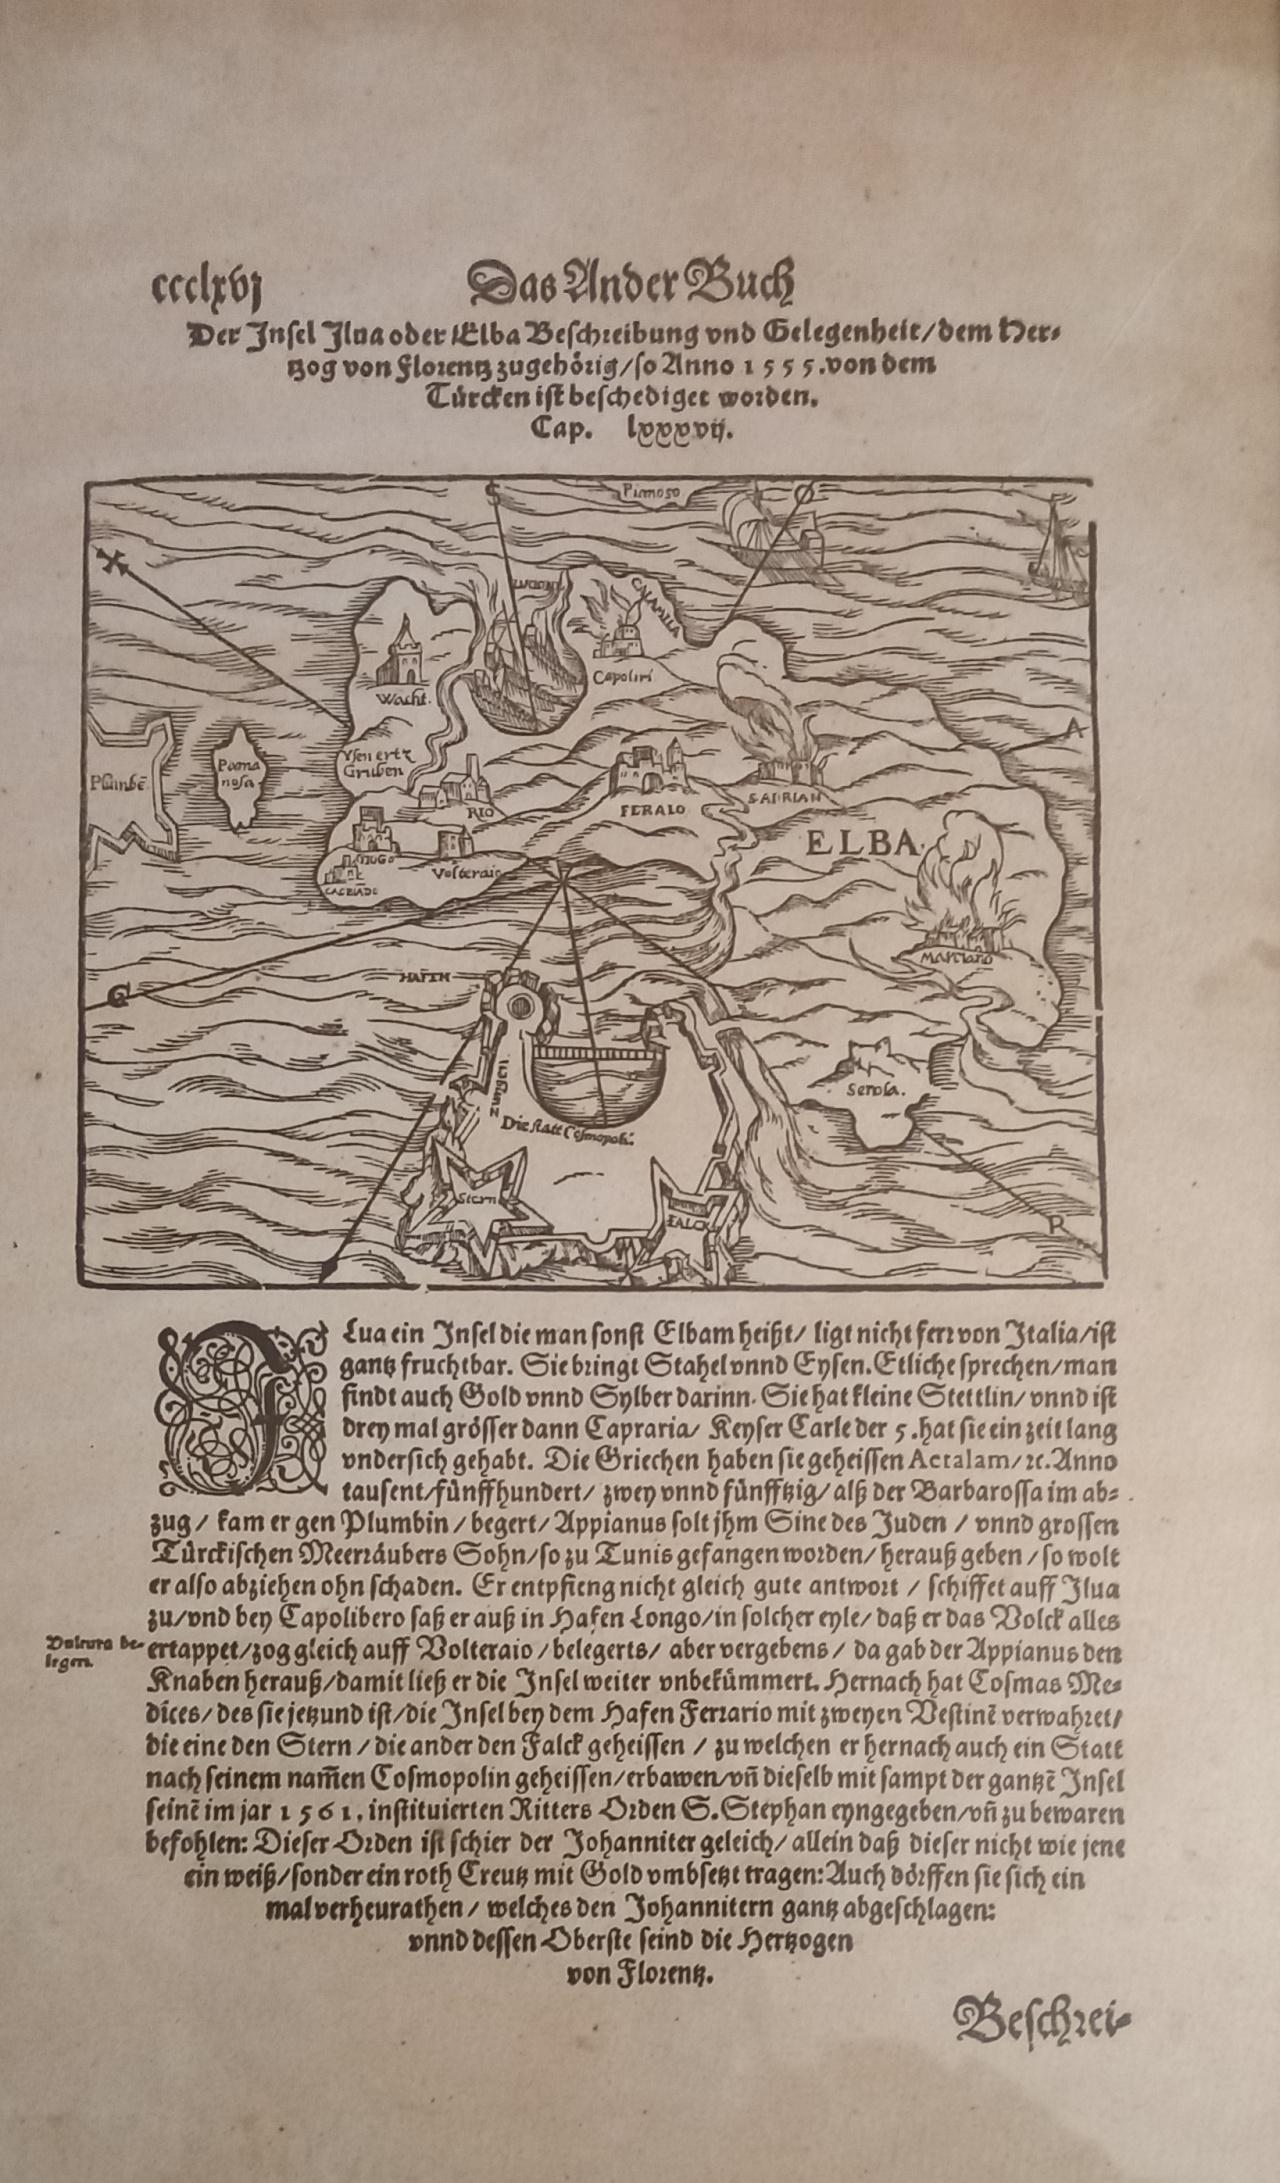 ccclxvj
Das Ander Buch
Der Inſel Ilua oder Elba Beſchreibung vnd Gelegenheit/dem Her⸗
tzog von Florentz zugehoͤrig/ſo Anno 1555.von dem
Tuͤrcken iſt beſchediget worden.
Cap. lxxxvij.
S
Pimoso
O
LVGONE
CALAMITA
Wacht.
Capoliri
A
Yſen ertz
Gruben
Poma
nosa
Plumbē
RIO
FERALO
S. ADRIAN
ELBA
IVGO
Volteraio
CACBIADO
Martiano
HAFEN
G
zungen
Serosa.
Die ſtatt Coſmopoli.
Stern
FALCK
R
Ilua ein Inſel die man ſonſt Elbam heißt/ ligt nicht ferr von Italia/iſt
gantz fruchtbar. Sie bringt Stahel vnnd Eyſen. Etliche ſprechen/man
findt auch Gold vnnd Sylber darinn. Sie hat kleine Stettlin/ vnnd iſt
drey mal groͤſſer dann Capraria/ Keyſer Carle der 5. hat ſie ein zeit lang
vnder ſich gehabt. Die Griechen haben ſie geheiſſen Aetalam/ꝛc. Anno
tauſent/fuͤnffhundert/ zwey vnnd fuͤnfftzig/ alß der Barbaroſſa im ab⸗
zug/ kam er gen Plumbin/begert/Appianus ſolt jhm Sine des Juden/ vnnd groſſen
Tuͤrckiſchen Meerraͤubers Sohn/ſo zu Tunis gefangen worden/herauß geben/ſo wolt
er alſo abziehen ohn ſchaden. Er entpfieng nicht gleich gute antwort/ ſchiffet auff Ilua
zu/vnd bey Capolibero ſaß er auß in Hafen Longo/in ſolcher eyle/daß er das Volck alles
Vulcura be⸗
legert.
ertappet/zog gleich auff Volteraio/belegerts/ aber vergebens/ da gab der Appianus den
Knaben herauß/damit ließ er die Inſel weiter vnbekuͤmmert. Hernach hat Coſmas Me⸗
dices/des ſie jetzund iſt/die Inſel bey dem Hafen Ferrario mit zweyen Veſtinē verwahret/
die eine den Stern/die ander den Falck geheiſſen/ zu welchen er hernach auch ein Statt
nach ſeinem nam̄en Coſmopolin geheiſſen/erbawen/vn̄ dieſelb mit ſampt der gantzē Inſel
ſeinē im jar 1561. inſtituierten Ritters Orden S. Stephan eyngegeben/vn̄ zu bewaren
befohlen: Dieſer Orden iſt ſchier der Johanniter geleich/ allein daß dieſer nicht wie jene
ein weiß/ſonder ein roth Creutz mit Gold vmbſetzt tragen: Auch doͤrffen ſie ſich ein
mal verheurathen/ welches den Johannitern gantz abgeſchlagen:
vnnd deſſen Oberſte ſeind die Hertzogen
von Florentz.
Beſchrei⸗